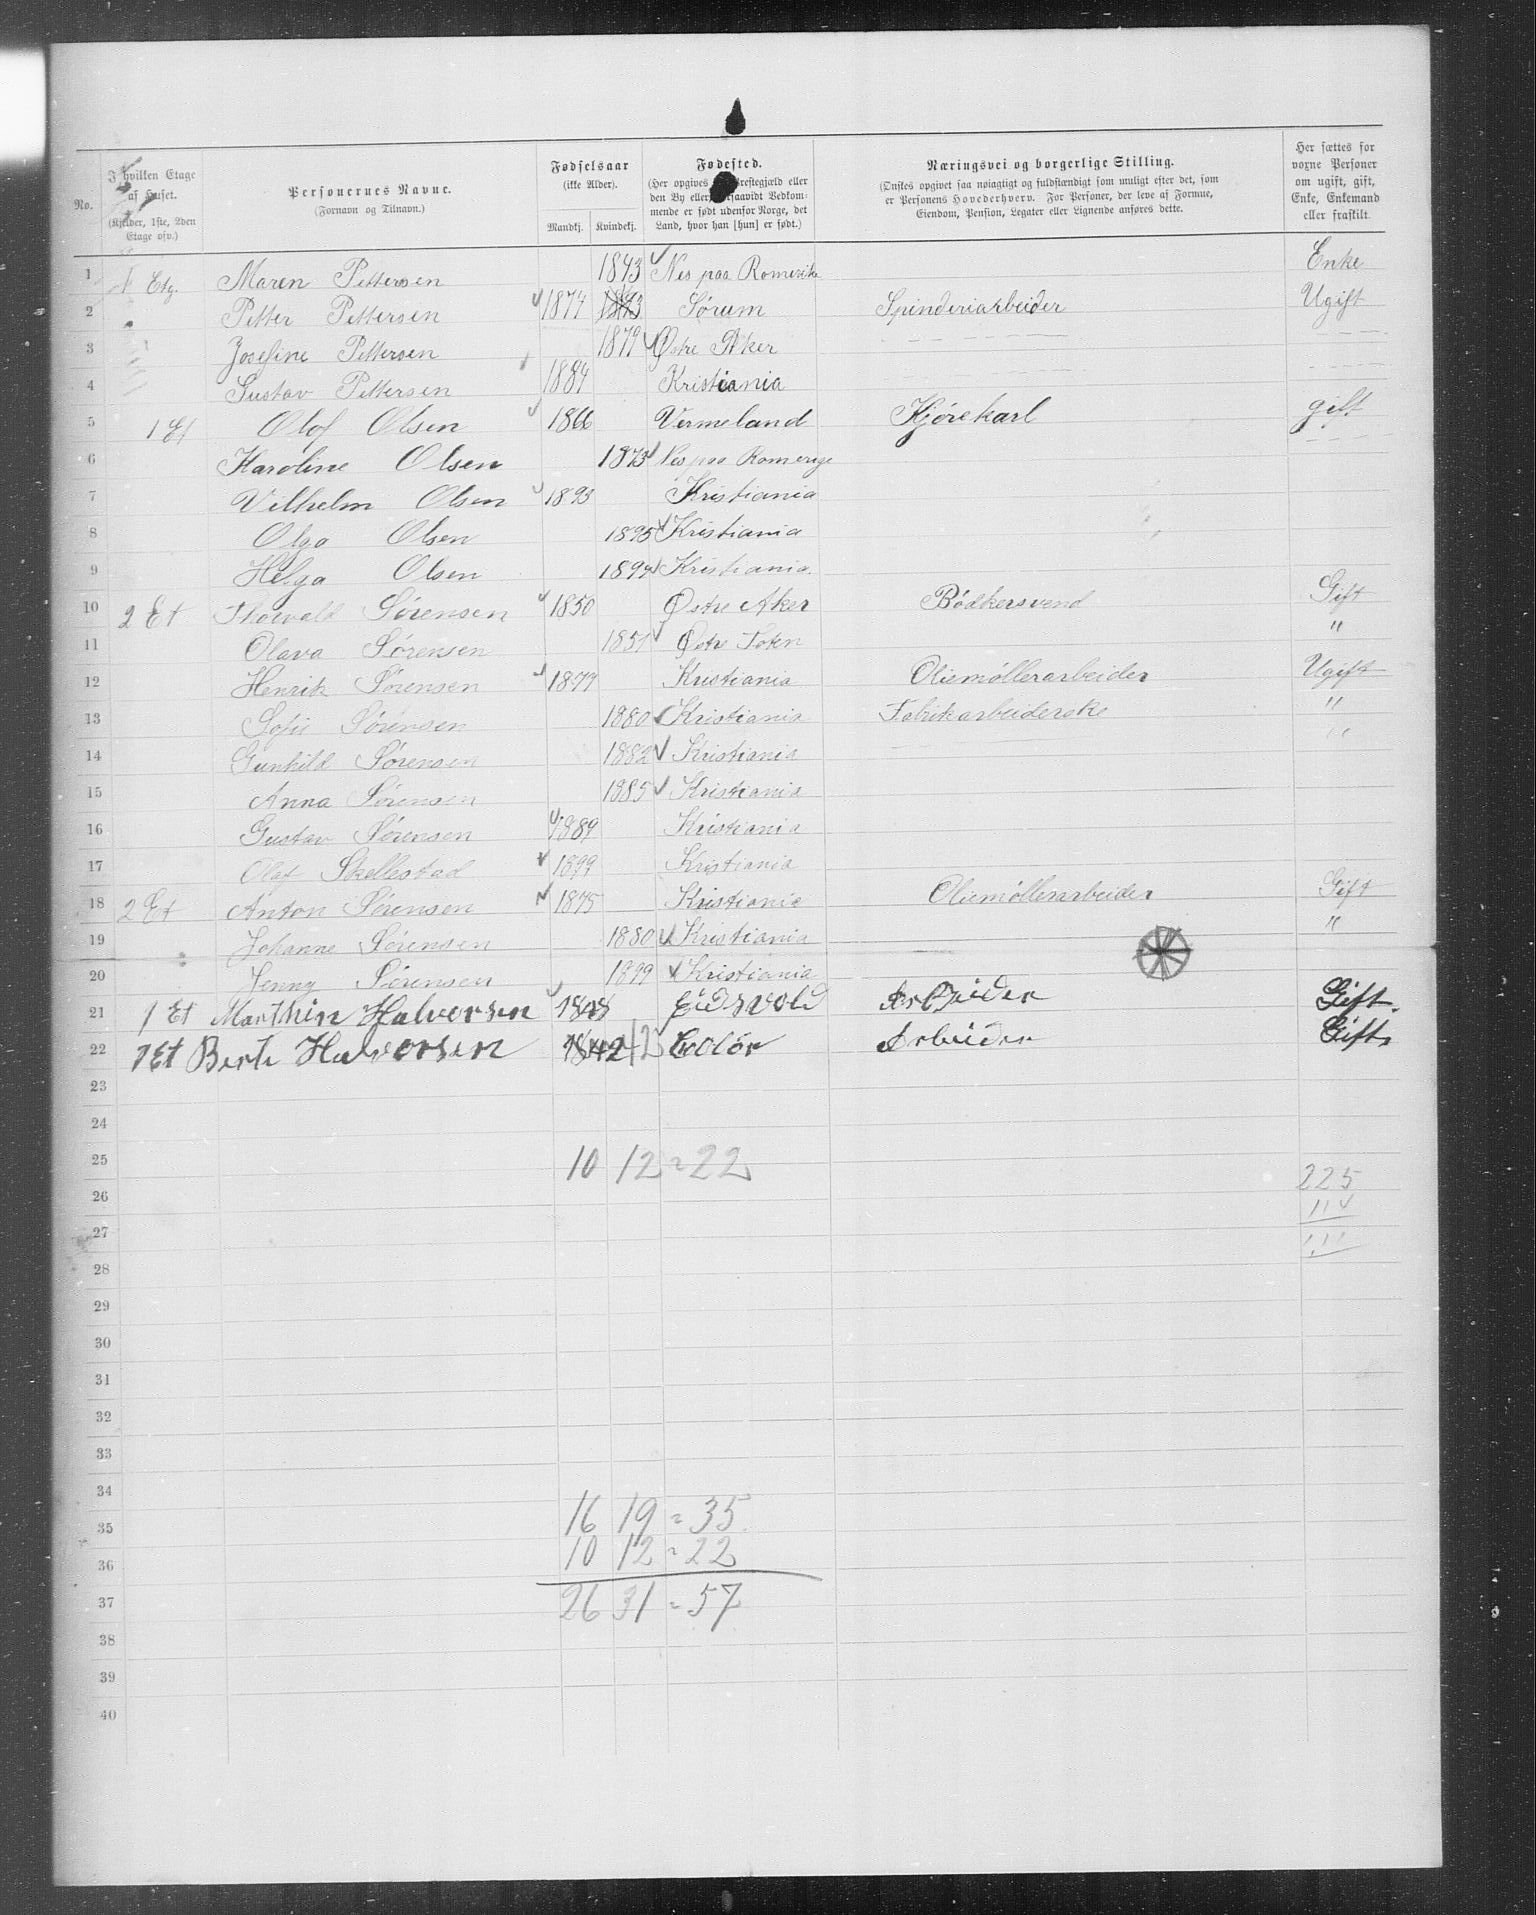 No. I hvilken Etage af Huset. (Kjelder, 1ste, 2den Etage osv.) Personernes Navne. (Fornavn og Tilnavn.) Fødselsaar (ikke Alder). Mandkj. Kvindekj. Fødested. (Her opgives Præstegjæld eller den By eller, forsaavidt Vedkommende er født udenfor Norge, det Land, hvor han [hun] er født.) Næringsvei og borgerlige Stilling. (Ønskes opgivet saa nøiagtigt og fuldstændigt som muligt efter det, som er Personens Hovederhverv. For Personer, der leve af Formue, Eiendom, Pension, Legater eller Lignende anføres dette. Her sættes for voxne Personer om ugift, gift, Enke, Enkemand eller fraskilt.
1 1 Etg. Maren Pettersen 1843 Nes paa Romerike Enke
2 Petter Pettersen 1874 Sørum Spinderiarbeider Ugift
3 Josefine Pettersen 1879 Østre Aker
4 Gustav Pettersen 1884 Kristiania
5 1 Et Olof Olsen 1866 Vermeland Kjørekarl gift
6 Karoline Olsen 1873 Nes paa Romerige
7 Vilhelm Olsen 1893 Kristiania
8 Olga Olsen 1895 Kristiania
9 Helga Olsen 1897 Kristiania.
10 2 Et Thorvald Sørensen 1850 Østre Aker Bødkersvend Gift
11 Olava Sørensen 1851 Østre Toten "
12 Henrik Sørensen 1877 Kristiania Oliemøllerarbeider Ugift
13 Sofie Sørensen 1880 Kristiania Fabrikarbeiderske "
14 Gunhild Sørensen 1882 Kristiania "
15 Anna Sørensen 1885 Kristiania
16 Gustav Sørensen 1889 Kristiania
17 Olaf Skellestad 1899 Kristiania
18 2 Et Anton Sørensen 1875 Kristiania Oliemøllerarbeider Gift
19 Johanne Sørensen 1880 Kristiania "
20 Jenny Sørensen 1899 Kristiania
21 1 Et Marthin Halvorsen 1848 Eidsvold Arbeider Gift
22 1 Et Berte Halvorsen 1842 Arbeider Gift
23
24
25 10 12 = 22 225
26 114
27 111
28
29
30
31
32
33
34
35 16 19 = 35
36 10 12 = 22
37 26 31 = 57
38
39
40